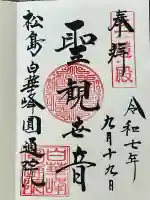 奉拝
令和七年
九月十九日
聖観世音
松島 白華峰圓通院